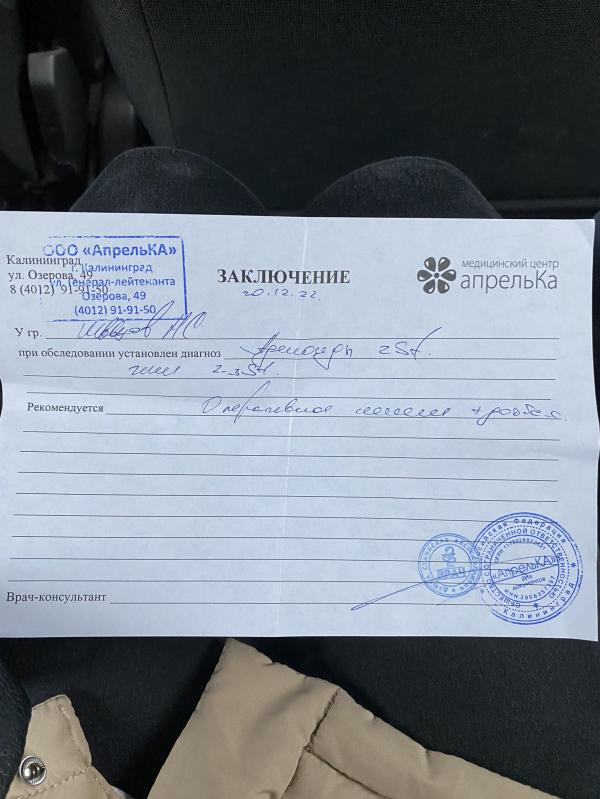 ООО «АпрельКА»
г. Калининград
ул. Генерал-лейтенанта
Озерова, 49
(4012) 91-91-50
Калининград
ул. Озерова, 49
8 (4012) 91-91-50
ЗАКЛЮЧЕНИЕ
20.12.22.
медицинский центр
апрельКа
У гр.
при обследовании установлен диагноз Аденоиды 2St.
2-3St.
Рекомендуется Оперативное лечение
Врач-консультант
ВРАЧ
«АпрельКА»
для
документов
Калининград